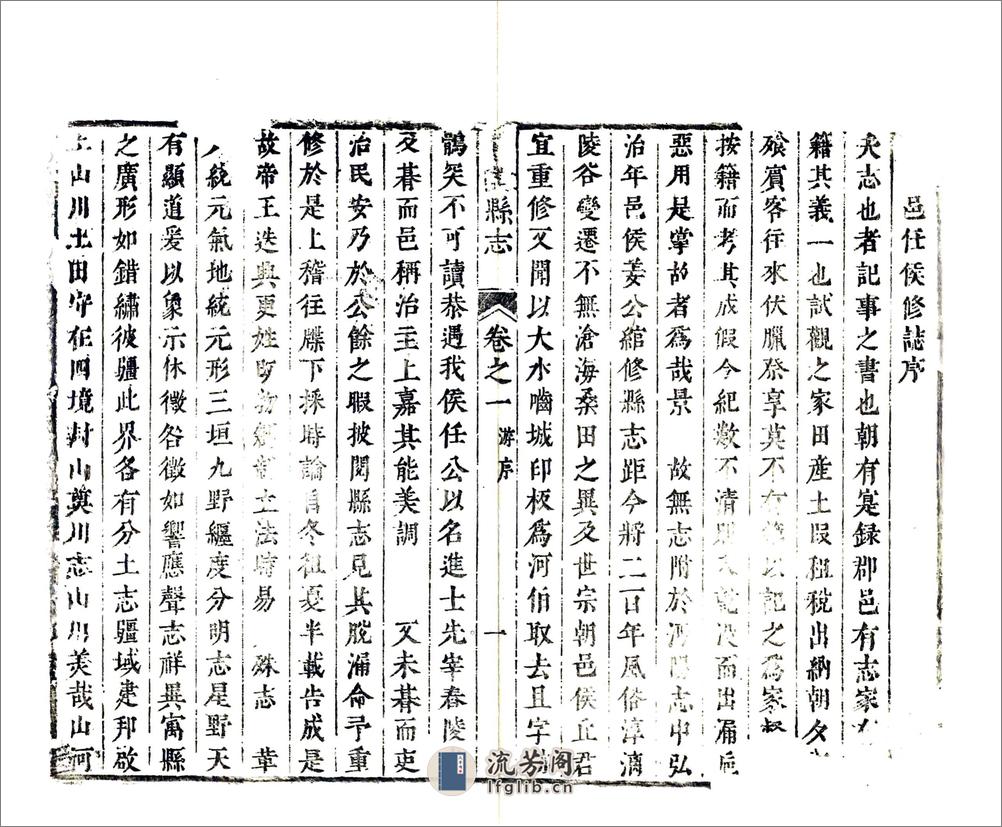 邑任侯修誌序
夫志也者記事之書也朝有寔錄郡邑有志家
籍其義一也試觀之家田產土叚租稅出納朝夕
飱賓客往來伏臘祭享莫不有以記之爲家
按籍而考其成假令紀數不清則而出漏
惡用是掌故者爲哉景 故無志附於志中弘
治年邑侯姜公綰修縣志距今將二百年風俗淳漓
陵谷變遷不無滄海桑田之異及世宗朝邑侯丘君
宜重修又開以大水嚙城印板爲河伯取去且字
縣志 卷之一 游序 一
鶺矣不可讀恭遇我侯任公以名進士先宰春陵
又朞而邑稱治主上嘉其能美調 又未朞而吏
治民安乃於公餘之暇披閱縣志見其脫漏命予重
修於是上稽往牒下採時論自冬徂夏半載告成是
故帝王迭興更姓立法時易 志 華
統元氣地統元形三垣九野纒度分明志星野天
有顯道爰以象示休徵咎徵如響應聲志祥異寓縣
之廣形如錯繡彼疆此界各有分土志疆域建邦啟
土山川土田守在四境封山奠川志山川美哉山河
流芳阁
lfglib.cn